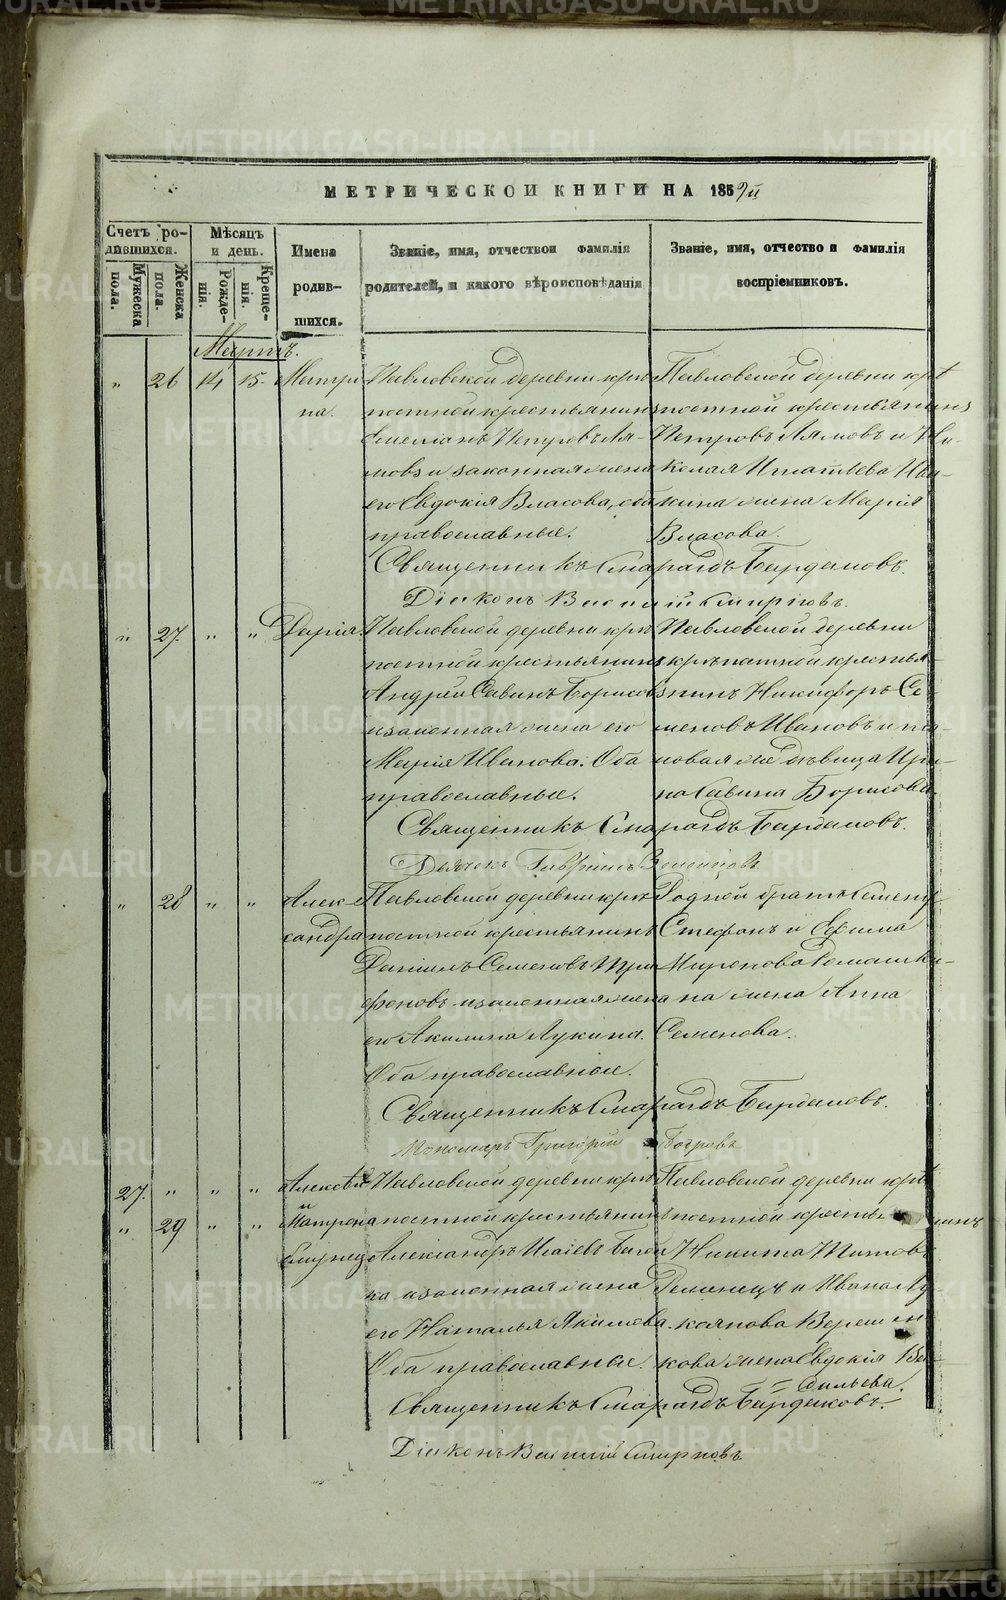 МЕТРИЧЕСКОЙ КНИГИ НА 1859й
Счетъ родившихся.
Мужеска пола.
Женска пола.
Мѣсяцъ и день.
Рожденія.
Крещенія.
Имена родившихся.
Званіе, имя, отчество и фамилія родителей, и какого вѣроисповѣданія
Званіе, имя, отчество и фамилія воспріемниковъ.
Мартъ.
" 26 14 15 Матрона.
Павловской деревни крѣ
постной крестьянинъ
Емеліанъ Петровъ Ля-
мовъ и законная жена
его Евдокія Власова, оба
православные.
Павловской деревни крѣ
постной крестьянинъ
Петровъ Лямовъ и Ни-
колая Игнатьева
жена Марія
Власова.
Священникъ Смарагдъ Бирюковъ.
Діаконъ Василій Смирновъ.
" 27. " " Дарія.
Павловской деревни крѣ
постной крестьянинъ
Андрей Савинъ Борисовъ
и законная жена его
Марія Иванова. Оба
православные.
Павловской деревни
крѣпостной крестья-
нинъ Никифоръ Се-
меновъ Ивановъ и
дѣвица Ири-
на Савина Борисова
Священникъ Смарагдъ
Дьячекъ Гавріилъ
" 28 " " Александра
Павловской деревни крѣ
постной крестьянинъ
Даніилъ Семеновъ Три
фоновъ и законная жена
его Акилина Лукина.
Оба православные.
Родной братъ Семену
Стефанъ и Ефима
Миронова Ромашки-
на жена Анна
Семенова.
Священникъ Смарагдъ
Пономарь Григорій Петровъ
27. " " " Алексѣй
" 29 " " и Матрона
близнецы
Павловской деревни крѣ
постной крестьянинъ
Александръ Исаіевъ
и законная жена
его Наталья Якимова.
Оба православные.
Павловской деревни крѣ
постной крестьянинъ
Никита Титовъ
и Ивана Лу-
коянова
жена Евдокія Ва-
сильева.
Священникъ Смарагдъ
Діаконъ Василій Смирновъ
METRIKI.GASO-URAL.RU